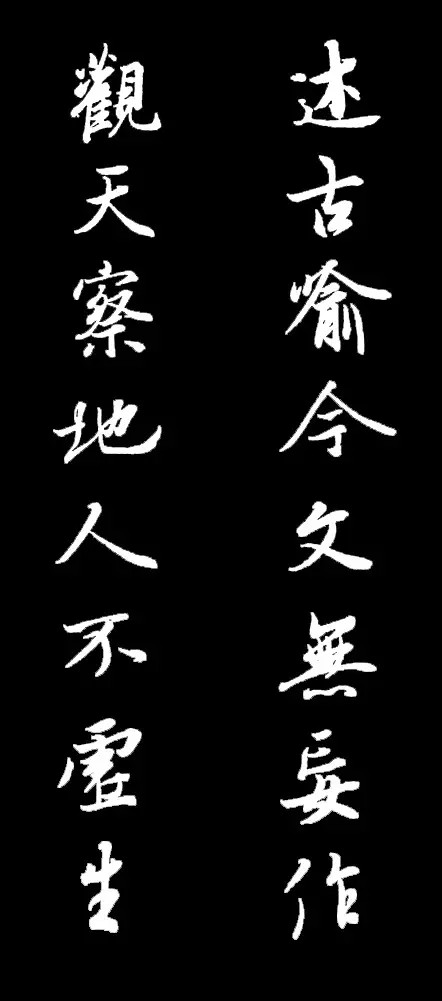 述古喻今文無妄作
觀天察地人不虛生